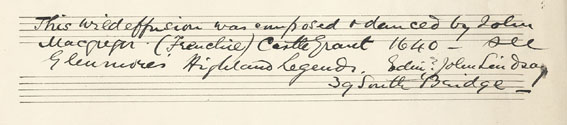 This wild effusion was composed & danced by John
Macgregor (Frenchie) Castle Grant 1640 – see
Glenmore's Highland Legends. Edinr. John Lindsay
39 South Bridge –